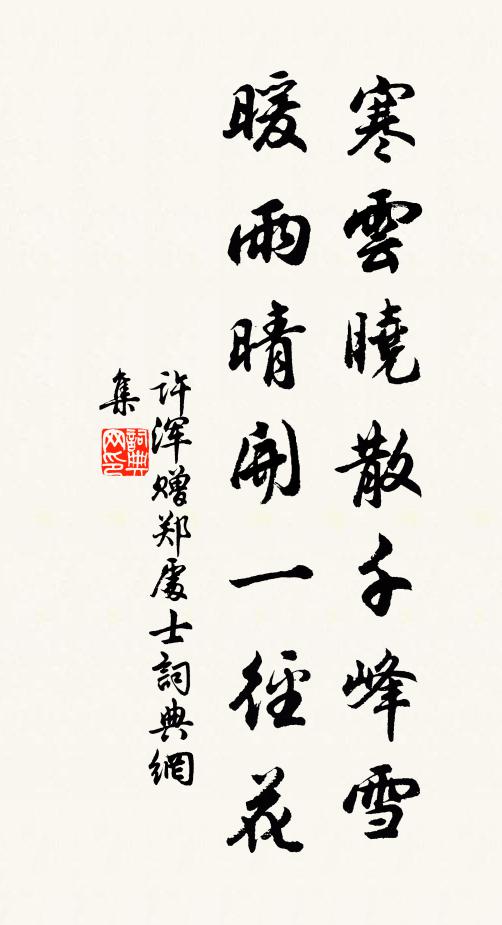 寒雲曉散千峰雪
暖雨晴開一徑花
许浑赠郑處士詞典網
集
詞典网印